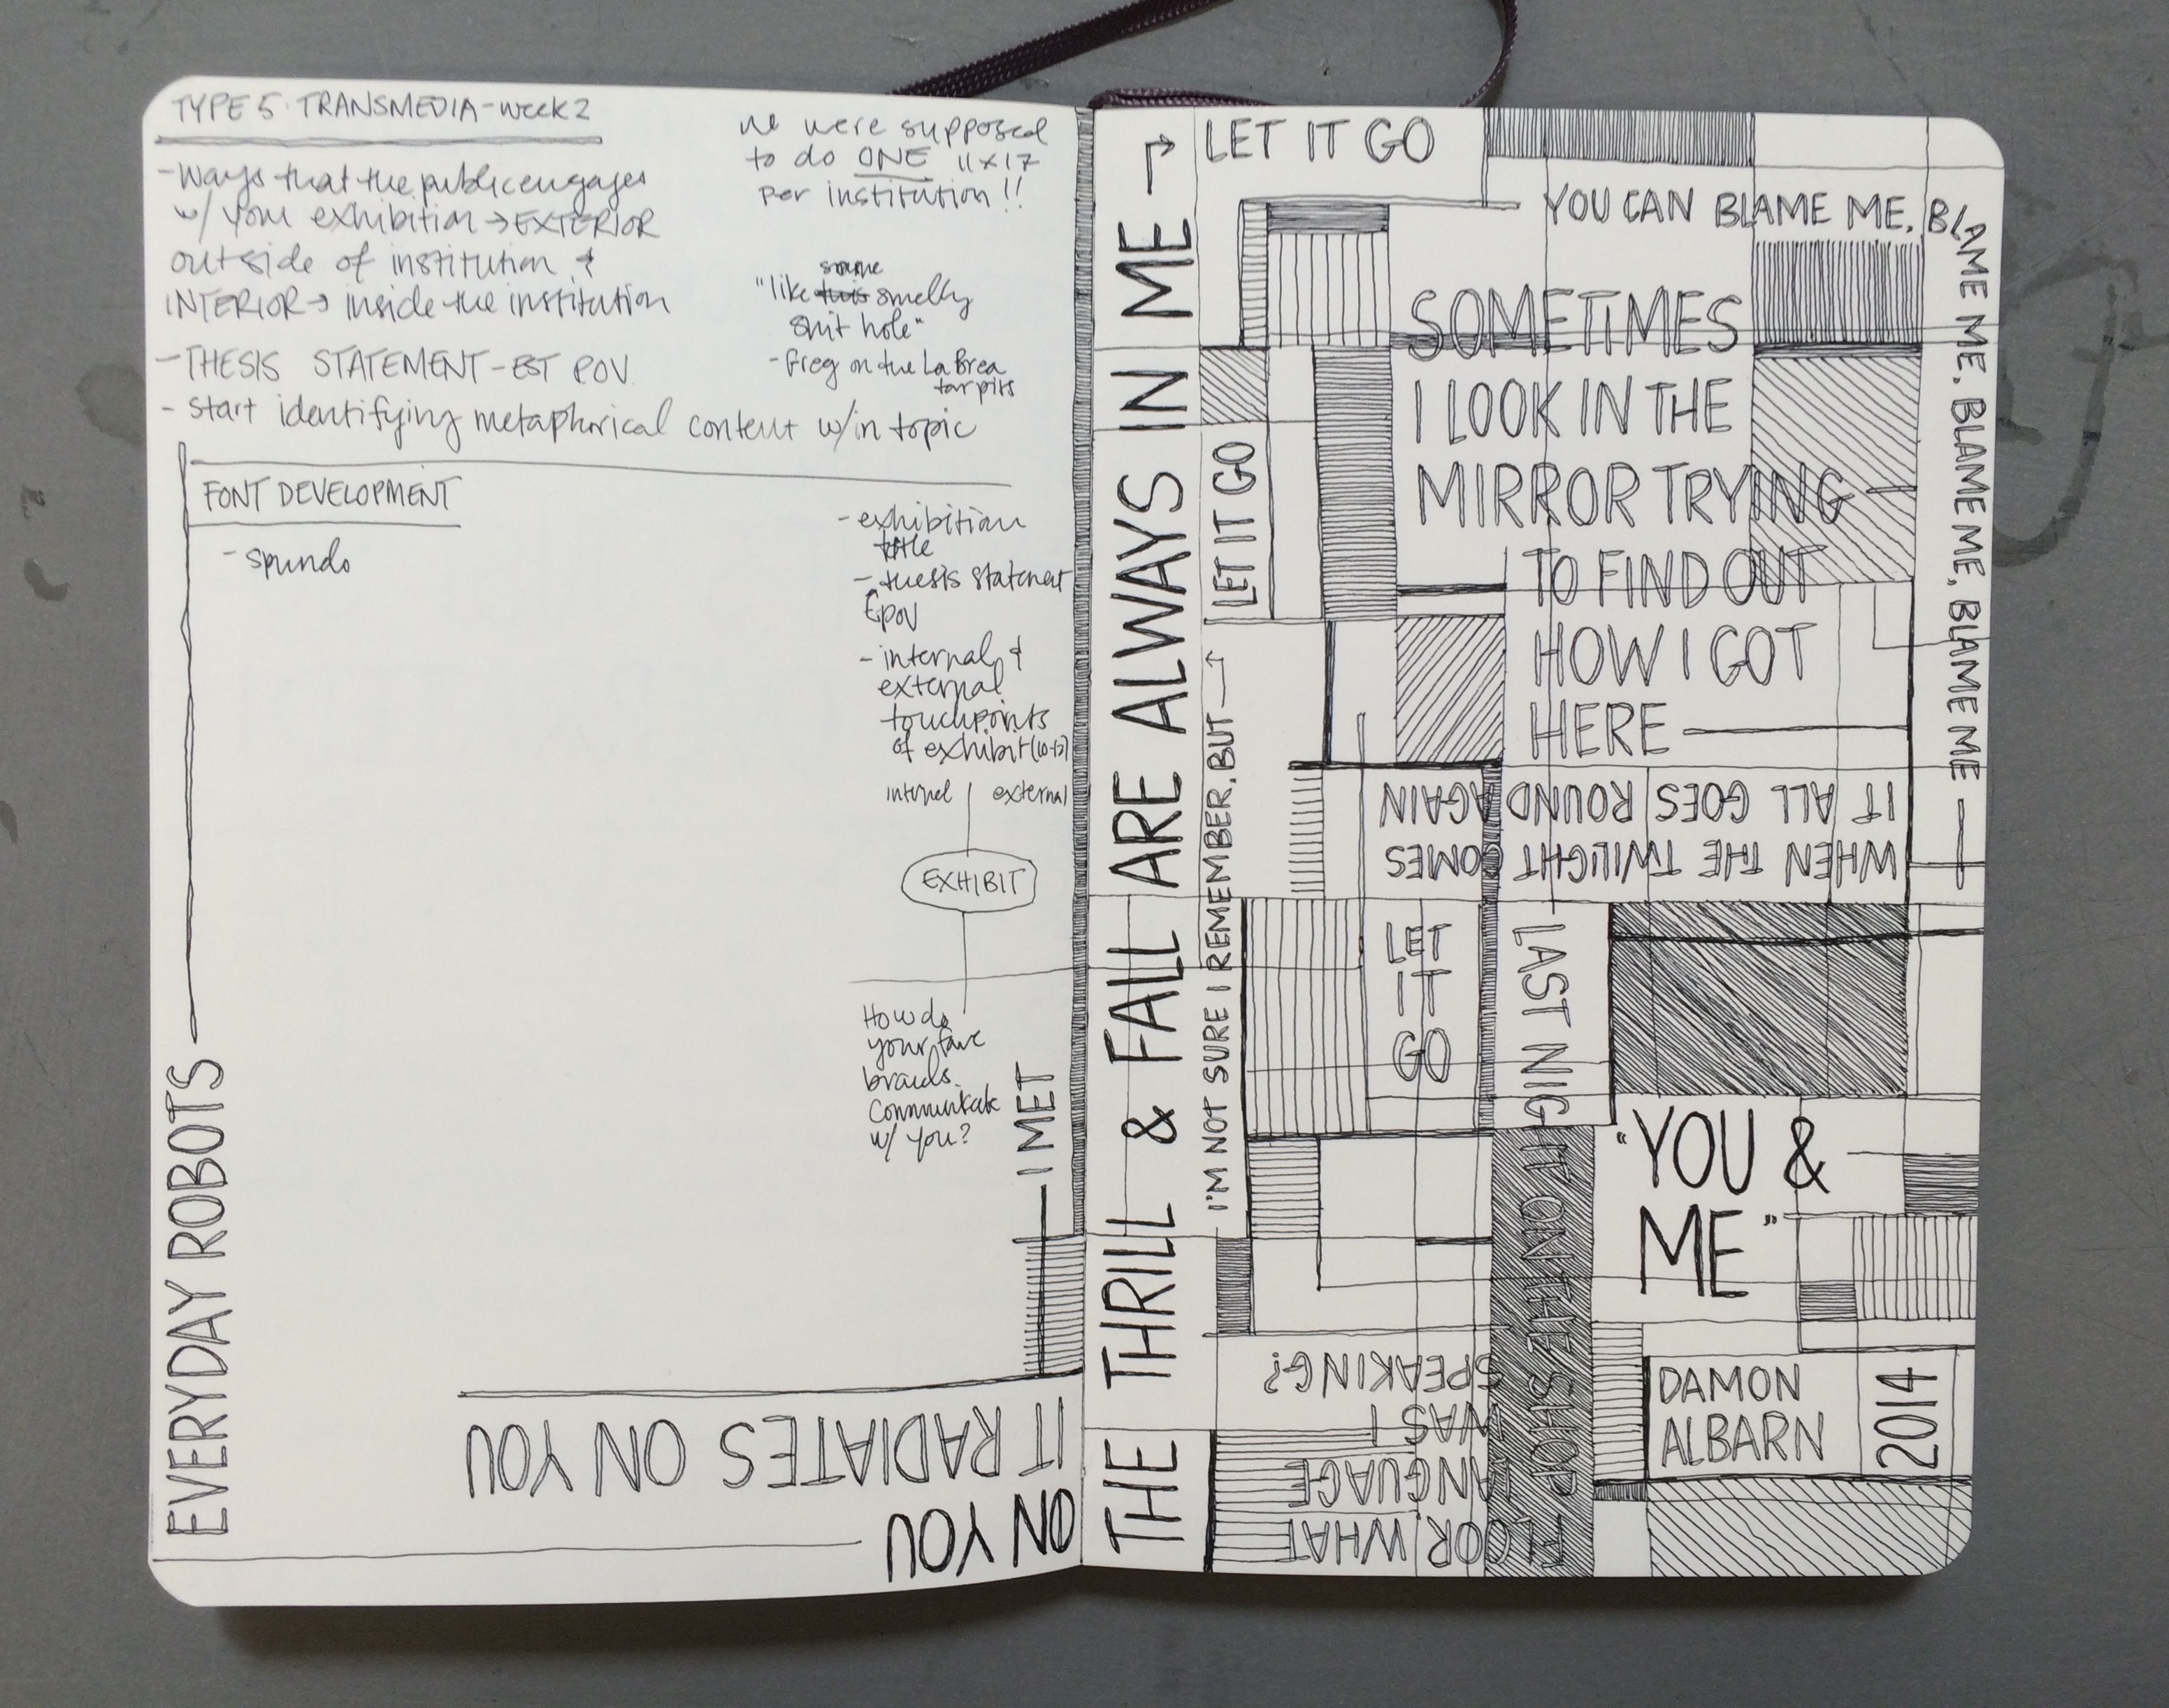 TYPE 5 · TRANSMEDIA - week 2
- ways that the public engages
w/ your exhibition → EXTERIOR
outside of institution &
INTERIOR → inside the institution
- THESIS STATEMENT - EST POV
- start identifying metaphorical content w/in topic
we were supposed
to do ONE 11x17
per institution!!
some
"like this smelly
shit hole"
- Greg on the La Brea
tar pits
FONT DEVELOPMENT
- spundo
- exhibition
title
- thesis statement
& POV
- internal &
external
touchpoints
of exhibit
internal external
EXHIBIT
How do
your fave
brands
communicate
w/ you?
EVERYDAY ROBOTS
I MET
IT RADIATES ON YOU
ON YOU
THE THRILL & FALL ARE ALWAYS IN ME →
LET IT GO
YOU CAN BLAME ME, BLAME ME, BLAME ME, BLAME ME
SOMETIMES
I LOOK IN THE
MIRROR TRYING
TO FIND OUT
HOW I GOT
HERE
LET IT GO
I'M NOT SURE I REMEMBER, BUT →
WHEN THE TWILIGHT COMES
IT ALL GOES ROUND AGAIN
LET
IT
GO
LAST NIGHT ON THE SHOP
FLOOR, WHAT
LANGUAGE
WAS I
SPEAKING?
"YOU &
ME"
DAMON
ALBARN
2014